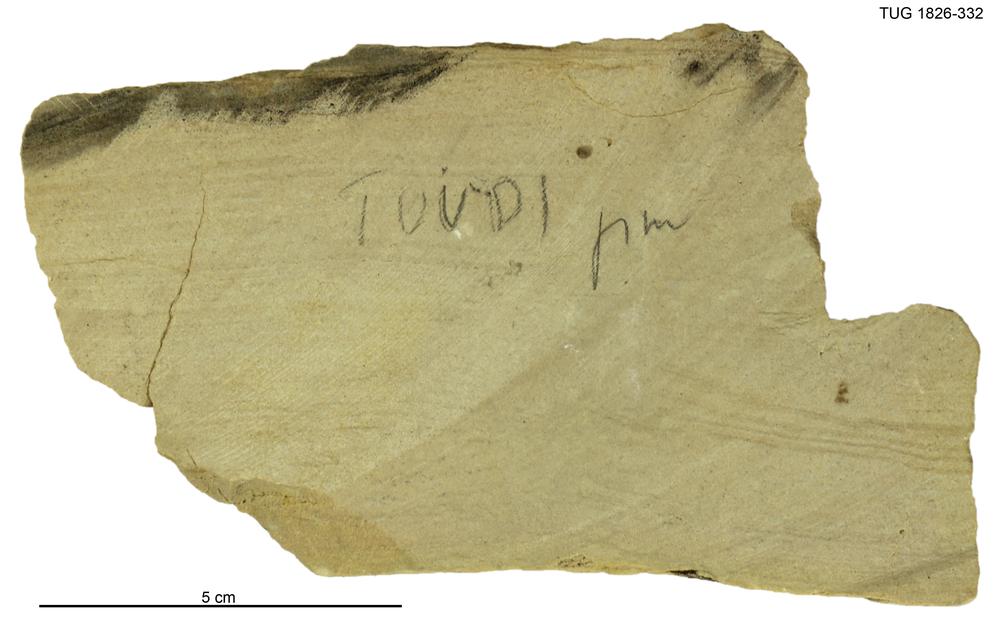 TUG 1826-332
TOUDI
5 cm